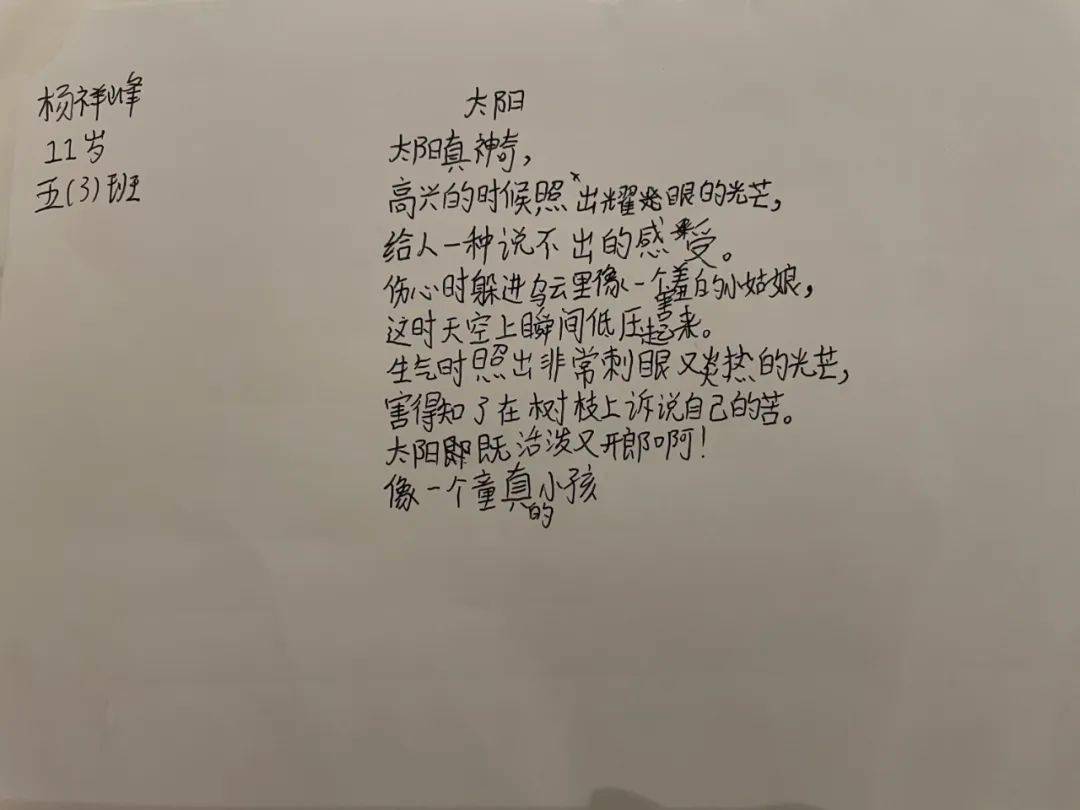 杨祥峰
11岁
五(3)班
太阳
太阳真神奇，
高兴的时候照出耀眼的光芒，
给人一种说不出的感受。
伤心时躲进乌云里像一个羞害的小姑娘，
这时天空上瞬间低压起来。
生气时照出非常刺眼又炎热的光芒，
害得知了在树枝上诉说自己的苦。
太阳既活泼又开郎啊！
像一个童真的小孩